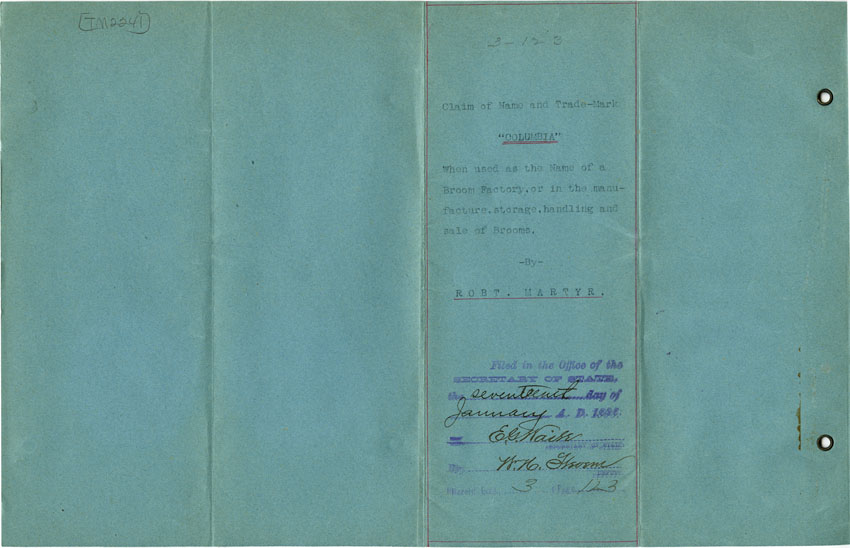 TM2241
3-123
Claim of Name and Trade-Mark
"COLUMBIA"
When used as the Name of a
Broom Factory.or in the manu-
facture.storage.handling and
sale of Brooms.
-By-
ROBT. MARTYR.
Filed in the Office of the
SECRETARY OF STATE,
the seventeenth day of
January A. D. 189
E G Waite
By W. H.
3 123